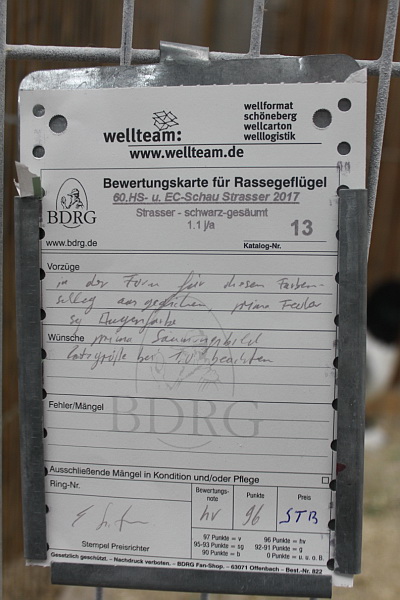 wellteam:
www.wellteam.de
wellformat
schöneberg
wellcarton
welllogistik
BDRG
www.bdrg.de
Bewertungskarte für Rassegeflügel
60.HS- u. EC-Schau Strasser 2017
Strasser - schwarz-gesäumt
1.1 j/a
13
Katalog-Nr.
Vorzüge
in der Form für diesen Farben-
schlag ausgeglichen, prima Feder
sg Augenfarbe
Wünsche prima Säumungsbild
bei 1,0 beachten
Fehler/Mängel
BDRG
Ausschließende Mängel in Kondition und/oder Pflege
Ring-Nr.
Bewertungs-
note
Punkte
Preis
hv
96
STB
97 Punkte = v
96 Punkte = hv
95-93 Punkte = sg
92-91 Punkte = g
90 Punkte = b
0 Punkte = u. o. B.
Stempel Preisrichter
Gesetzlich geschützt. – Nachdruck verboten. – BDRG Fan-Shop. – 63071 Offenbach – Best.-Nr. 822